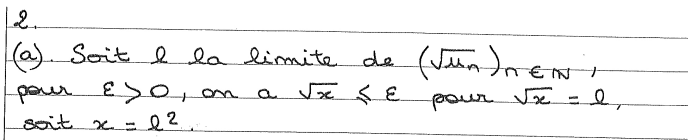 2.
(a). Soit l la limite de (√un)n∈ℕ,
pour ε>0, on a √x ≤ ε pour √x = l,
soit x = l².